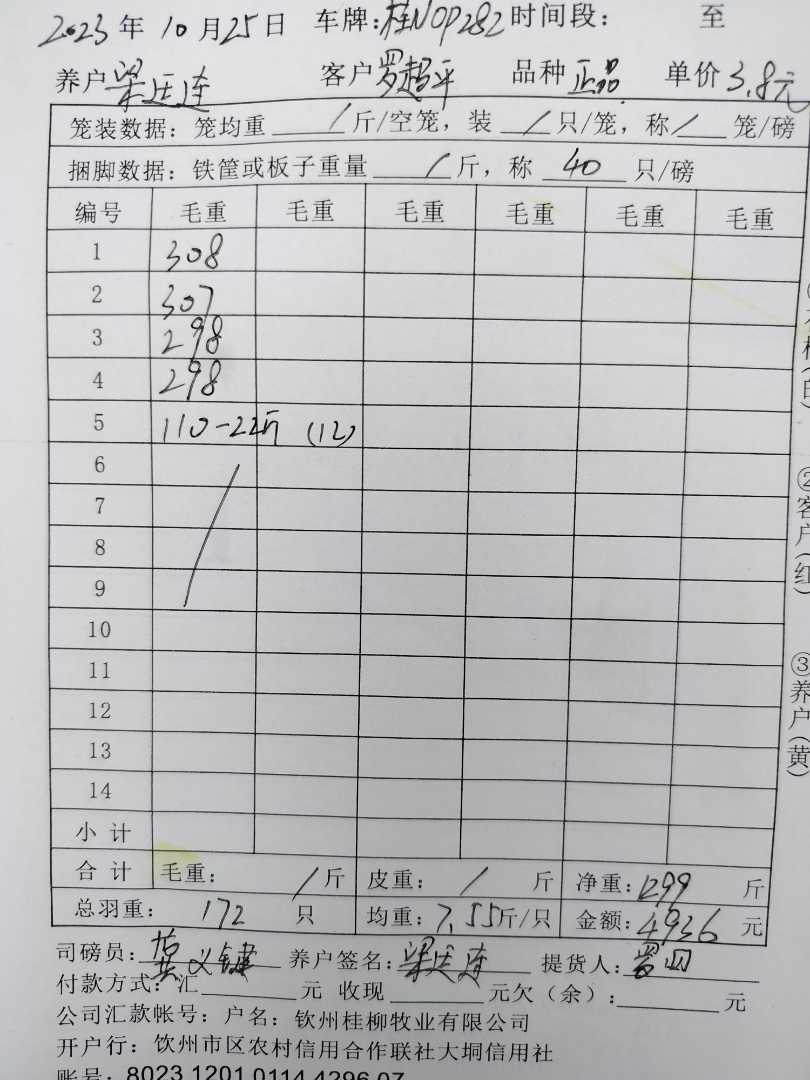 2023年 10月25日 车牌:桂N0P282 时间段: 至
养户 梁廷连 客户 罗超平 品种 正品 单价 3.8元
笼装数据: 笼均重 / 斤/空笼, 装 / 只/笼, 称 / 笼/磅
捆脚数据: 铁筐或板子重量 / 斤, 称 40 只/磅
编号 毛重 毛重 毛重 毛重 毛重 毛重
1 308
2 307
3 298
4 298
5 110-22斤 (12)
6
7
8
9
10
11
12
13
14
小 计
合 计 毛重: / 斤 皮重: / 斤 净重: 1299 斤
总羽重: 172 只 均重: 7.55斤/只 金额: 4936 元
司磅员: 养户签名: 梁廷连 提货人:
付款方式: 汇 元 收现 元欠(余): 元
公司汇款帐号: 户名: 钦州桂柳牧业有限公司
开户行: 钦州市区农村信用合作联社大垌信用社
账号: 8023 1201 0114 4296 07
②客户(红)
③养户(黄)